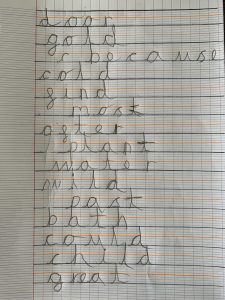 door
gold
because
cold
find
most
after
plant
water
wild
past
bath
could
child
great